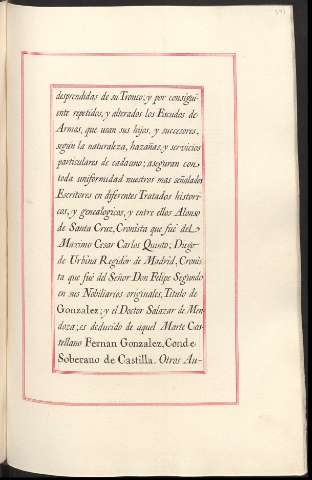 desprendidas de su Tronco; y por consigui-
ente repetidos, y alterados los Escudos de
Armas, que usan sus hijos, y succesores,
según la naturaleza, hazañas, y servicios
particulares de cadauno; aseguran con
toda uniformidad nuestros mas señalados
Escritores en diferentes Tratados histori-
cos, y genealogicos, y entre ellos Alonso
de Santa Cruz, Cronista que fué del
Maximo Cesar Carlos Quinto; Diego
de Urbina Regidór de Madrid, Cronis
ta que fué del Señor Don Felipe Segundo
en sus Nobiliarios originales, Titulo de
Gonzalez; y el Doctor Salazar de Men
doza; es deducido de aquel Marte Cas-
tellano Fernan Gonzalez, Conde
Soberano de Castilla. Otros Au-